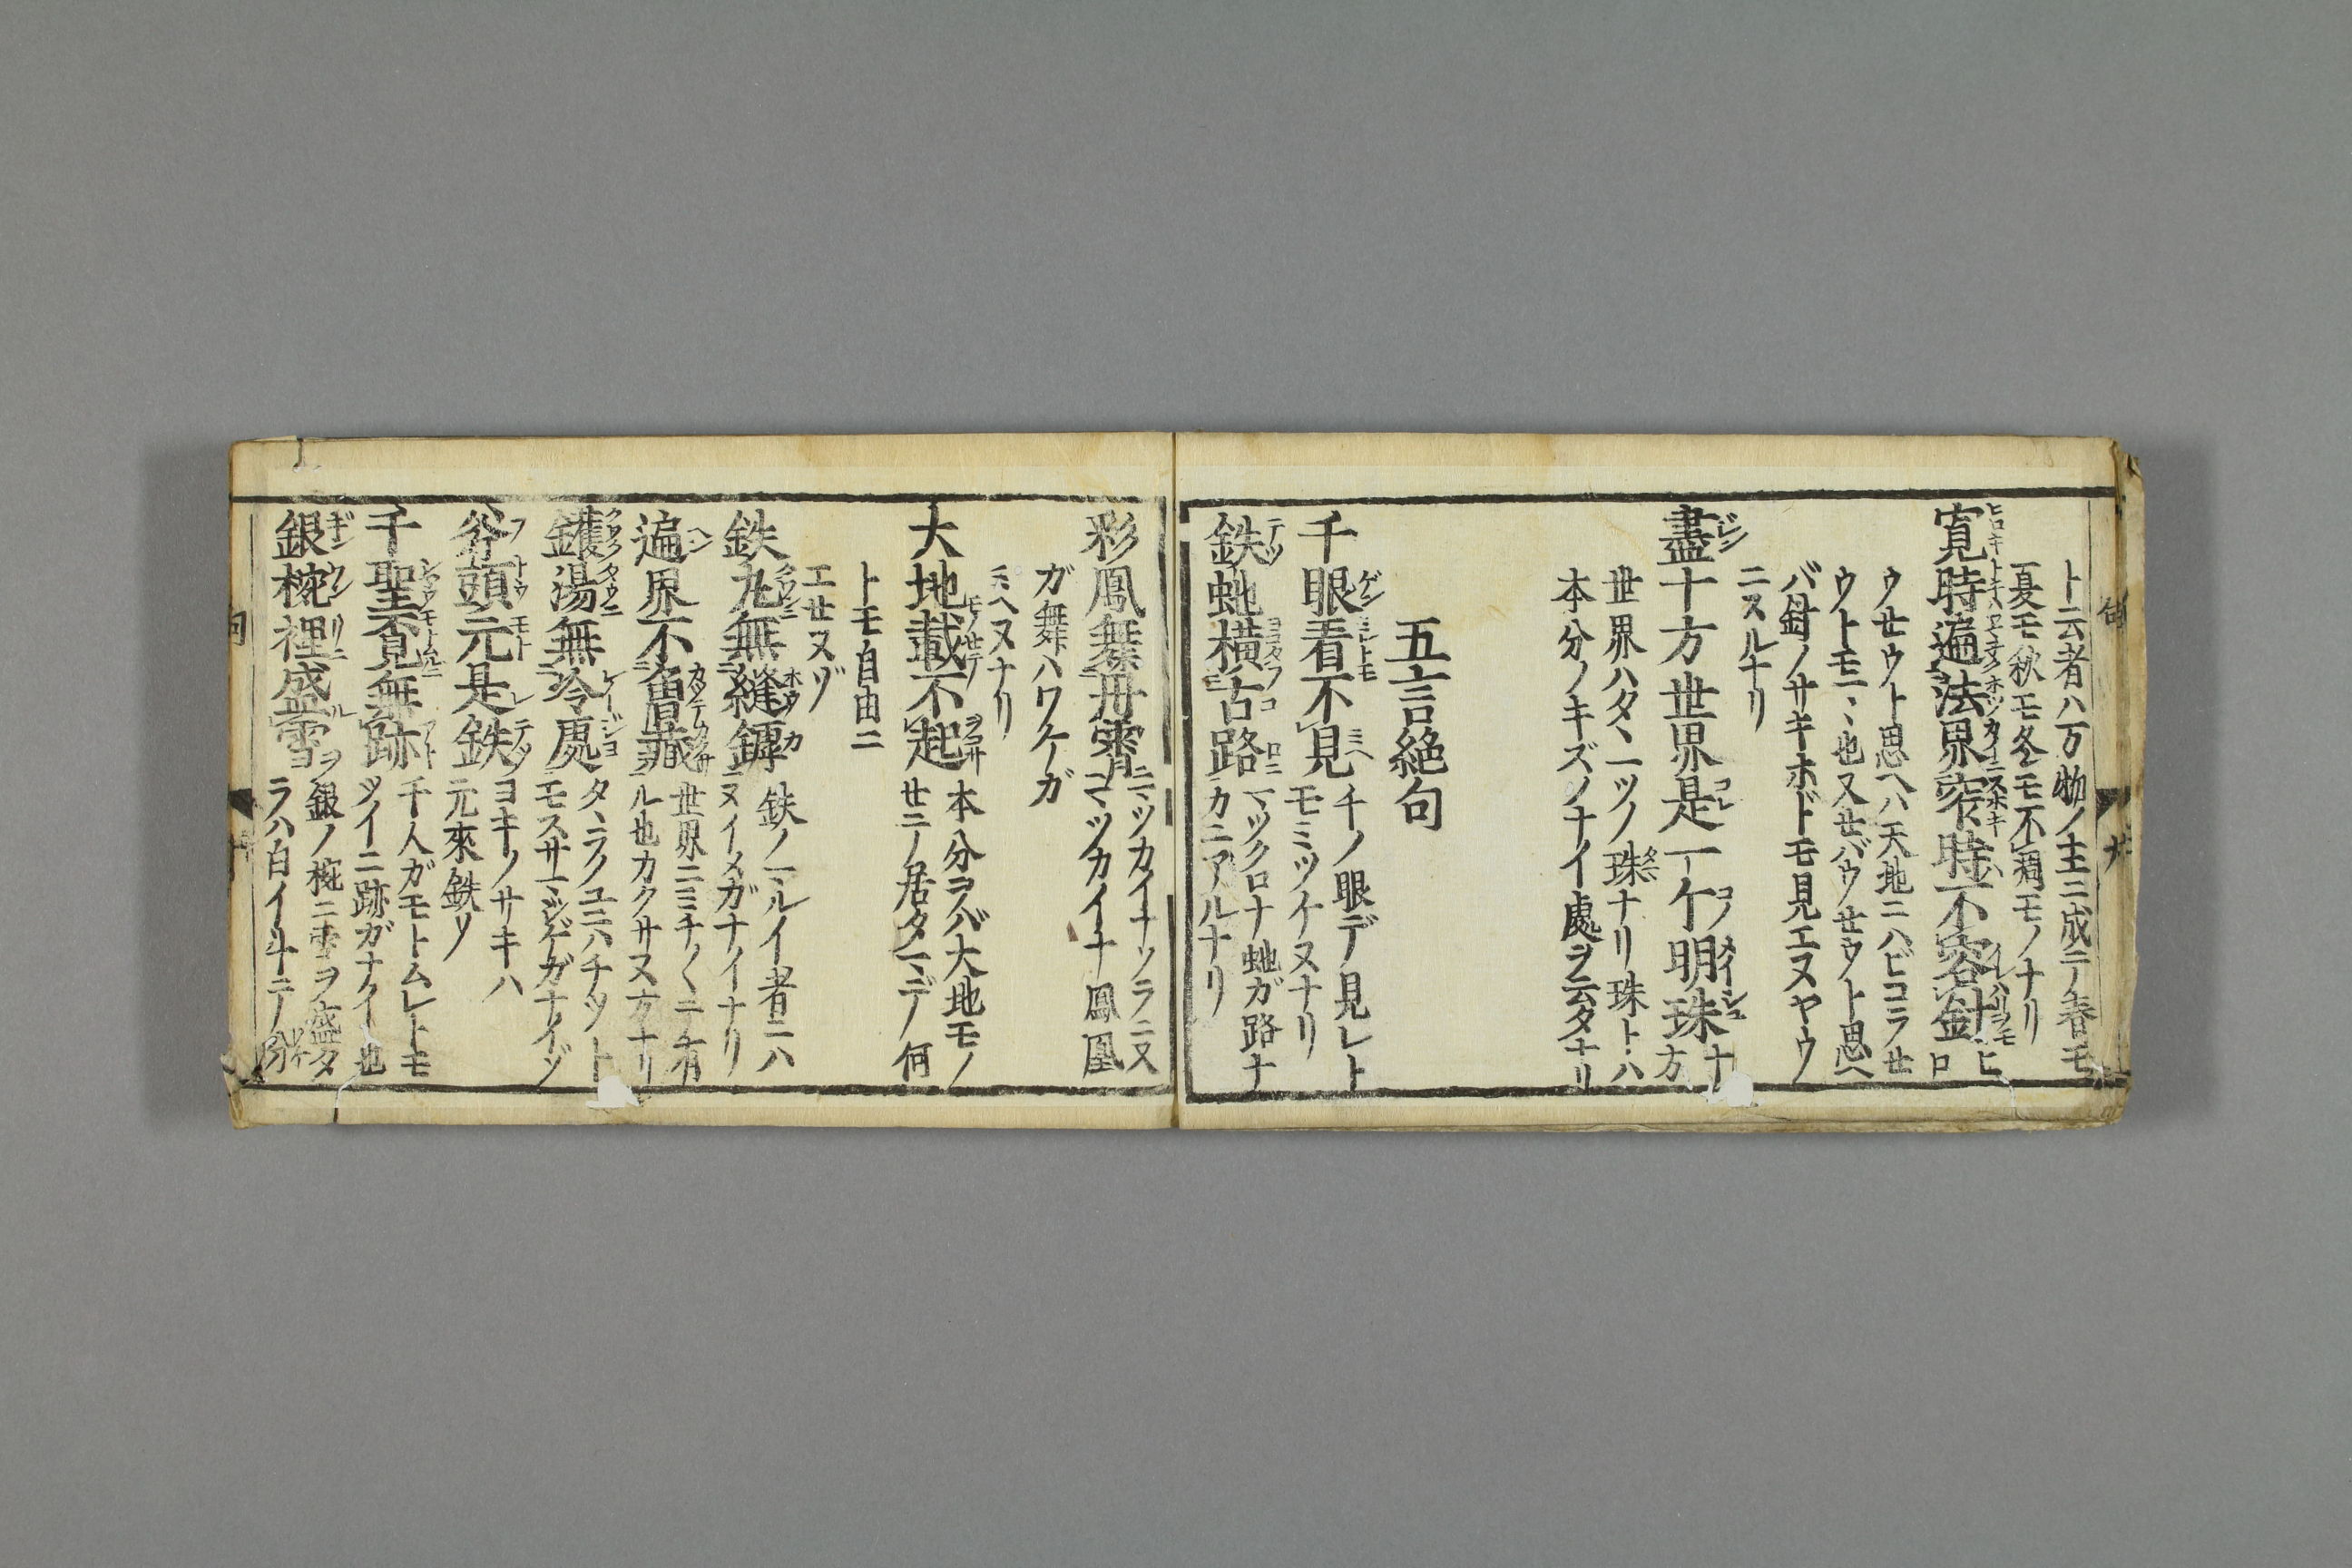 ト云者ハ万物ノ主ニ成テ春モ
夏モ秋モ冬モ不凋モノナリ
寛時遍法界窄時不容針 ヒロ
ウセウト思ヘハ天地ニハビコラせ
ウトモ也又せバウせウト思ヘ
バ針ノサキホドモ見エヌヤウ
ニスルナリ
盡十方世界是一个明珠 十方
世界ハタヽ一ツノ珠ナリ珠トハ
本分ノキズノナイ處ヲ云タナリ
五言絶句
千眼看不見 千ノ眼デ見レト
モミツケヌナリ
鉄虵横古路 マックロナ虵ガ路ナ
カニアルナリ
彩鳳舞丹霄 マッカイナソラニ又
マツカイナ鳳凰
ガ舞ハワケガ
ミヘヌナリ
大地載不起 本分ヲバ大地モノ
せテノ居タマデ何
トモ自由ニ
エせヌゾ
鉄丸無縫罅 鉄ノマルイ者ニハ
ヌイメガナイナリ
遍界不曽蔵 世界ニミチ〱テ有
ル也カクサヌ方ナリ
鑊湯無冷處 タヽラノユニハチツト
モスサマジゲガナイゾ
斧頭元是鉄 ヨキノサキハ
元來鉄ソ
千聖覓無跡 千人ガモトムレトモ
ツイニ跡ガナイ也
銀椀裡盛雪 銀ノ椀ニ雪ヲ盛タ
ラハ白イ斗テ